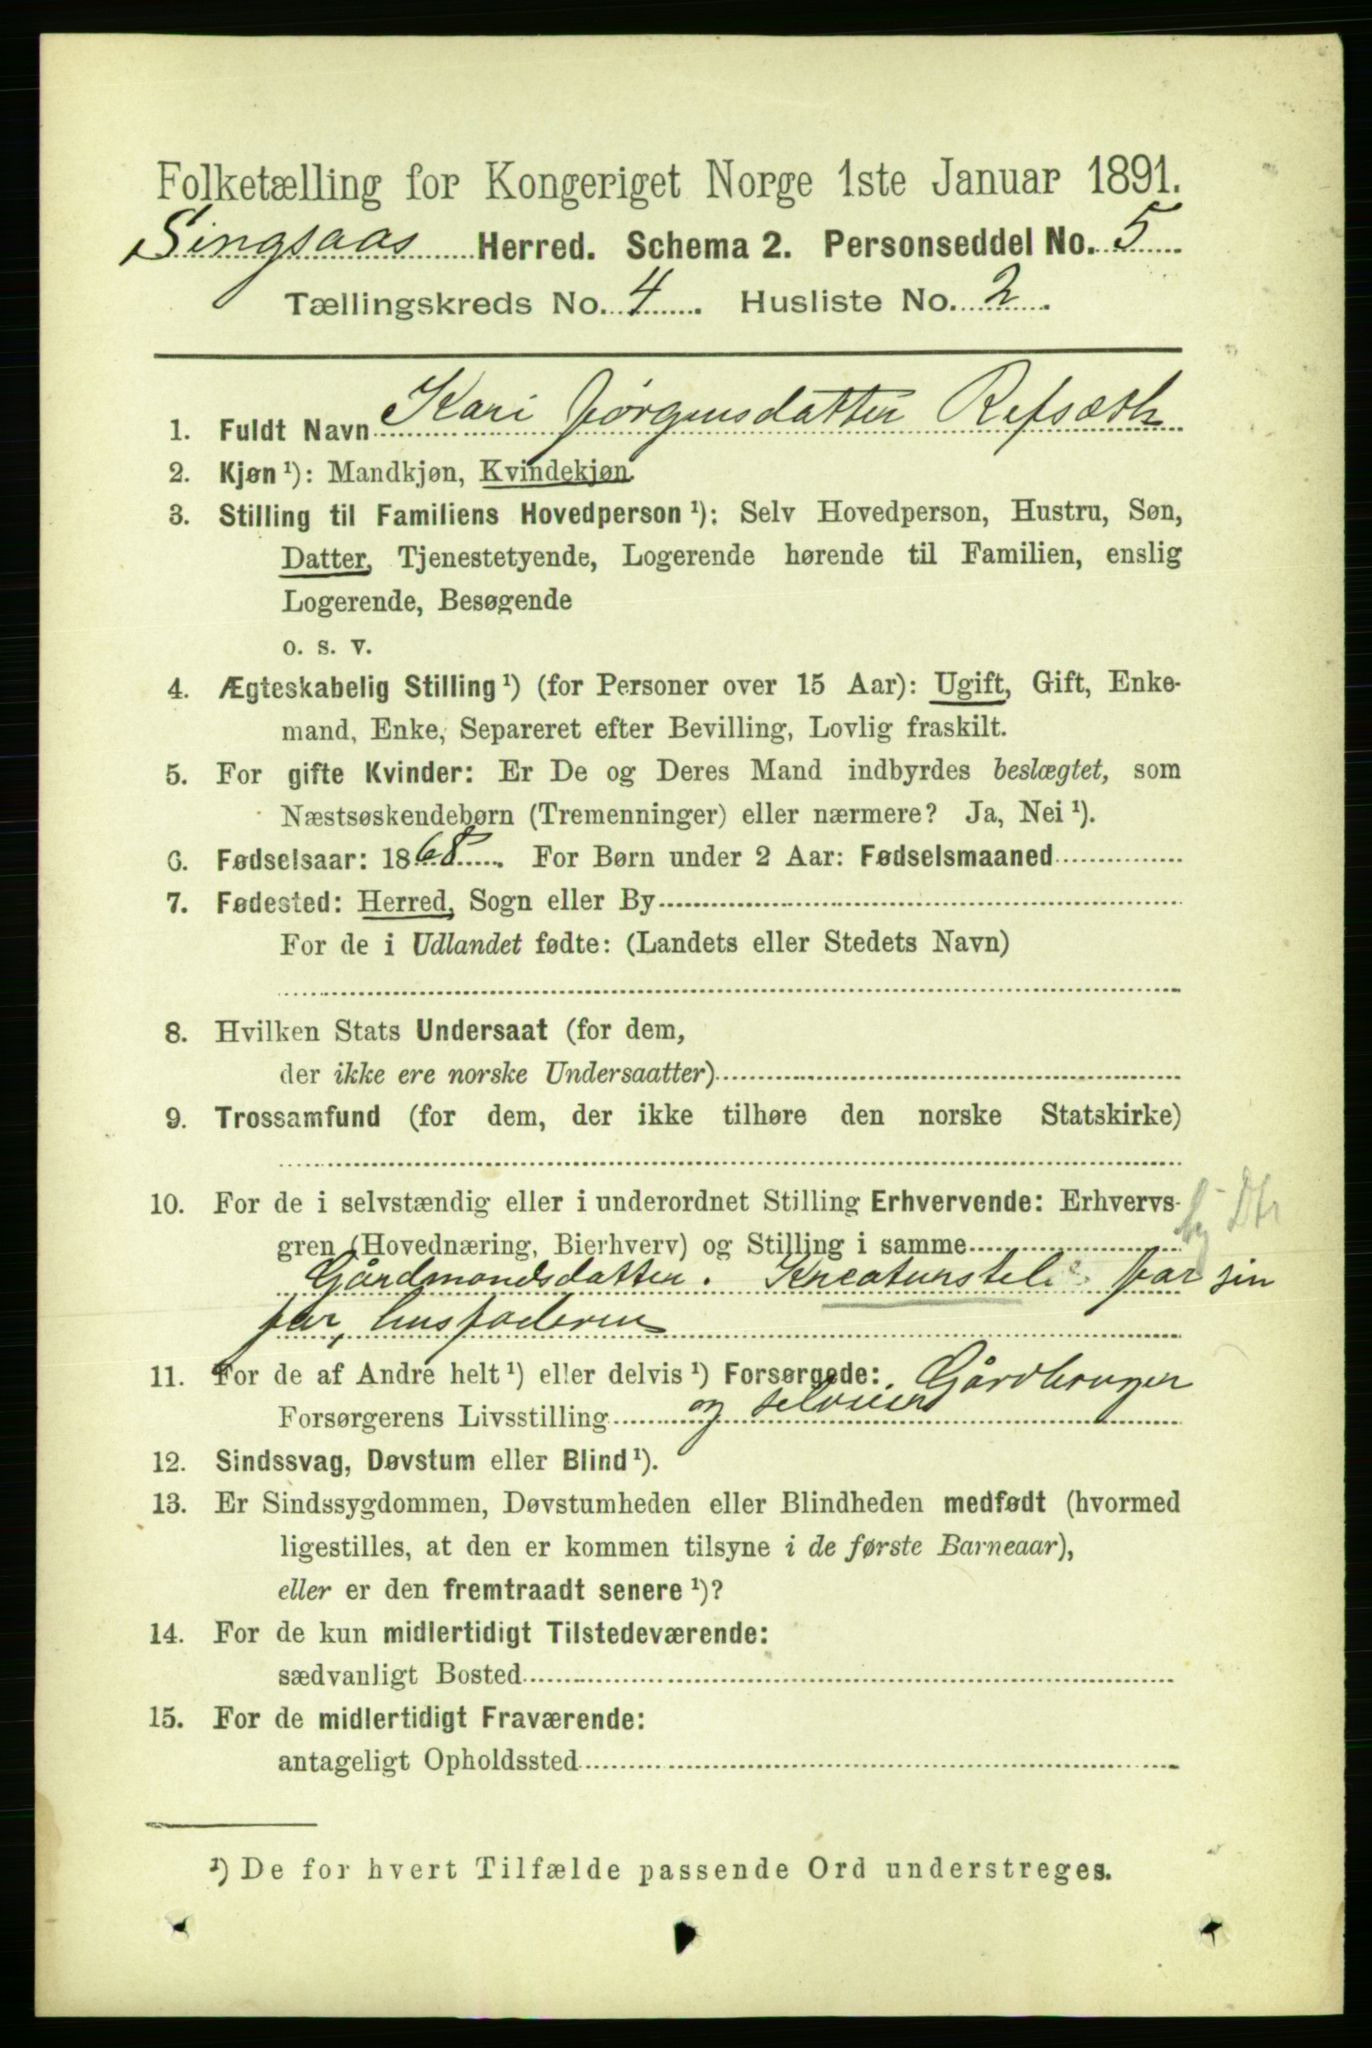 Folketælling for Kongeriget Norge 1ste Januar 1891.
Singsaas Herred. Schema 2. Personseddel No. 5
Tællingskreds No. 4. Husliste No. 2.
1. Fuldt Navn Kari Jørgensdatter Refsæth
2. Kjøn ¹): Mandkjøn, Kvindekjøn.
3. Stilling til Familiens Hovedperson ¹): Selv Hovedperson, Hustru, Søn,
Datter, Tjenestetyende, Logerende hørende til Familien, enslig
Logerende, Besøgende
o. s. v.
4. Ægteskabelig Stilling ¹) (for Personer over 15 Aar): Ugift, Gift, Enke-
mand, Enke, Separeret efter Bevilling, Lovlig fraskilt.
5. For gifte Kvinder: Er De og Deres Mand indbyrdes beslægtet, som
Næstsøskendebørn (Tremenninger) eller nærmere? Ja, Nei ¹).
6. Fødselsaar: 1868. For Børn under 2 Aar: Fødselsmaaned
7. Fødested: Herred, Sogn eller By
For de i Udlandet fødte: (Landets eller Stedets Navn)
8. Hvilken Stats Undersaat (for dem,
der ikke ere norske Undersaatter)
9. Trossamfund (for dem, der ikke tilhøre den norske Statskirke)
10. For de i selvstændig eller i underordnet Stilling Erhvervende: Erhvervs-
gren (Hovednæring, Bierhverv) og Stilling i samme
Gårdmandsdatter. Kreaturstel for sin
far, husfaderen
11. For de af Andre helt ¹) eller delvis ¹) Forsørgede: Gårdbruger
Forsørgerens Livsstilling og selveier
12. Sindssvag, Døvstum eller Blind ¹).
13. Er Sindssygdommen, Døvstumheden eller Blindheden medfødt (hvormed
ligestilles, at den er kommen tilsyne i de første Barneaar),
eller er den fremtraadt senere ¹)?
14. For de kun midlertidigt Tilstedeværende:
sædvanligt Bosted
15. For de midlertidigt Fraværende:
antageligt Opholdssted
¹) De for hvert Tilfælde passende Ord understreges.